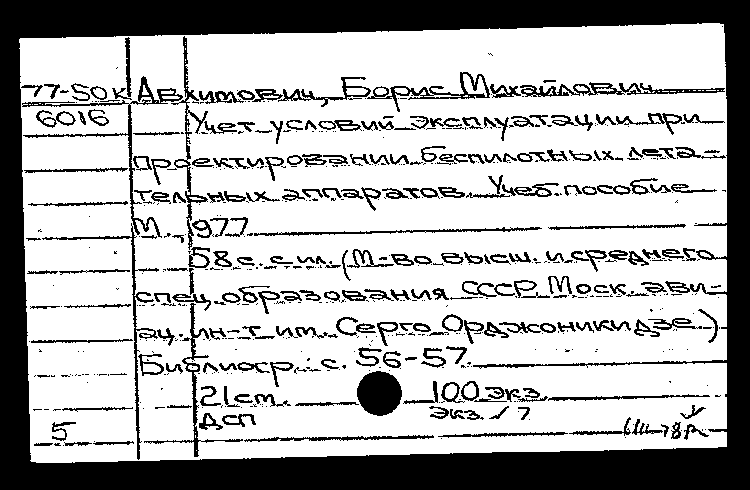 77-50к Авхимович, Борис Михайлович
6016 Учет условий эксплуатации при
проектировании беспилотных лета-
тельных аппаратов. Учеб. пособие
М., 977
58 с. с ил. (М-во высш. и среднего
спец. образования СССР. Моск. ави-
ац. ин-т им. Серго Орджоникидзе)
Библиогр.: с. 56-57.
21 см. 100 экз.
ДСП экз. 7
5